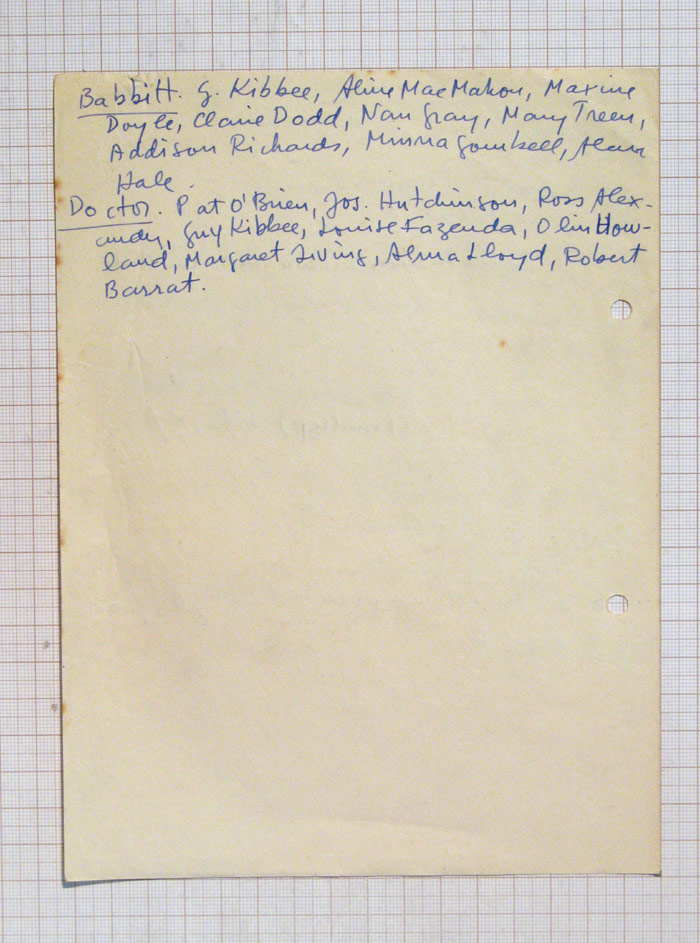 Babbitt. G. Kibbee, Aline MacMahon, Maxine
Doyle, Claire Dodd, Nan Gray, Mary Treen,
Addison Richards, Minna Gombell, Alan
Hale.
Doctor. Pat O'Brien, Jos. Hutchinson, Ross Alex-
andr, Guy Kibbee, Louise Fazenda, Olin How-
land, Margaret Irving, Alma Lloyd, Robert
Barrat.